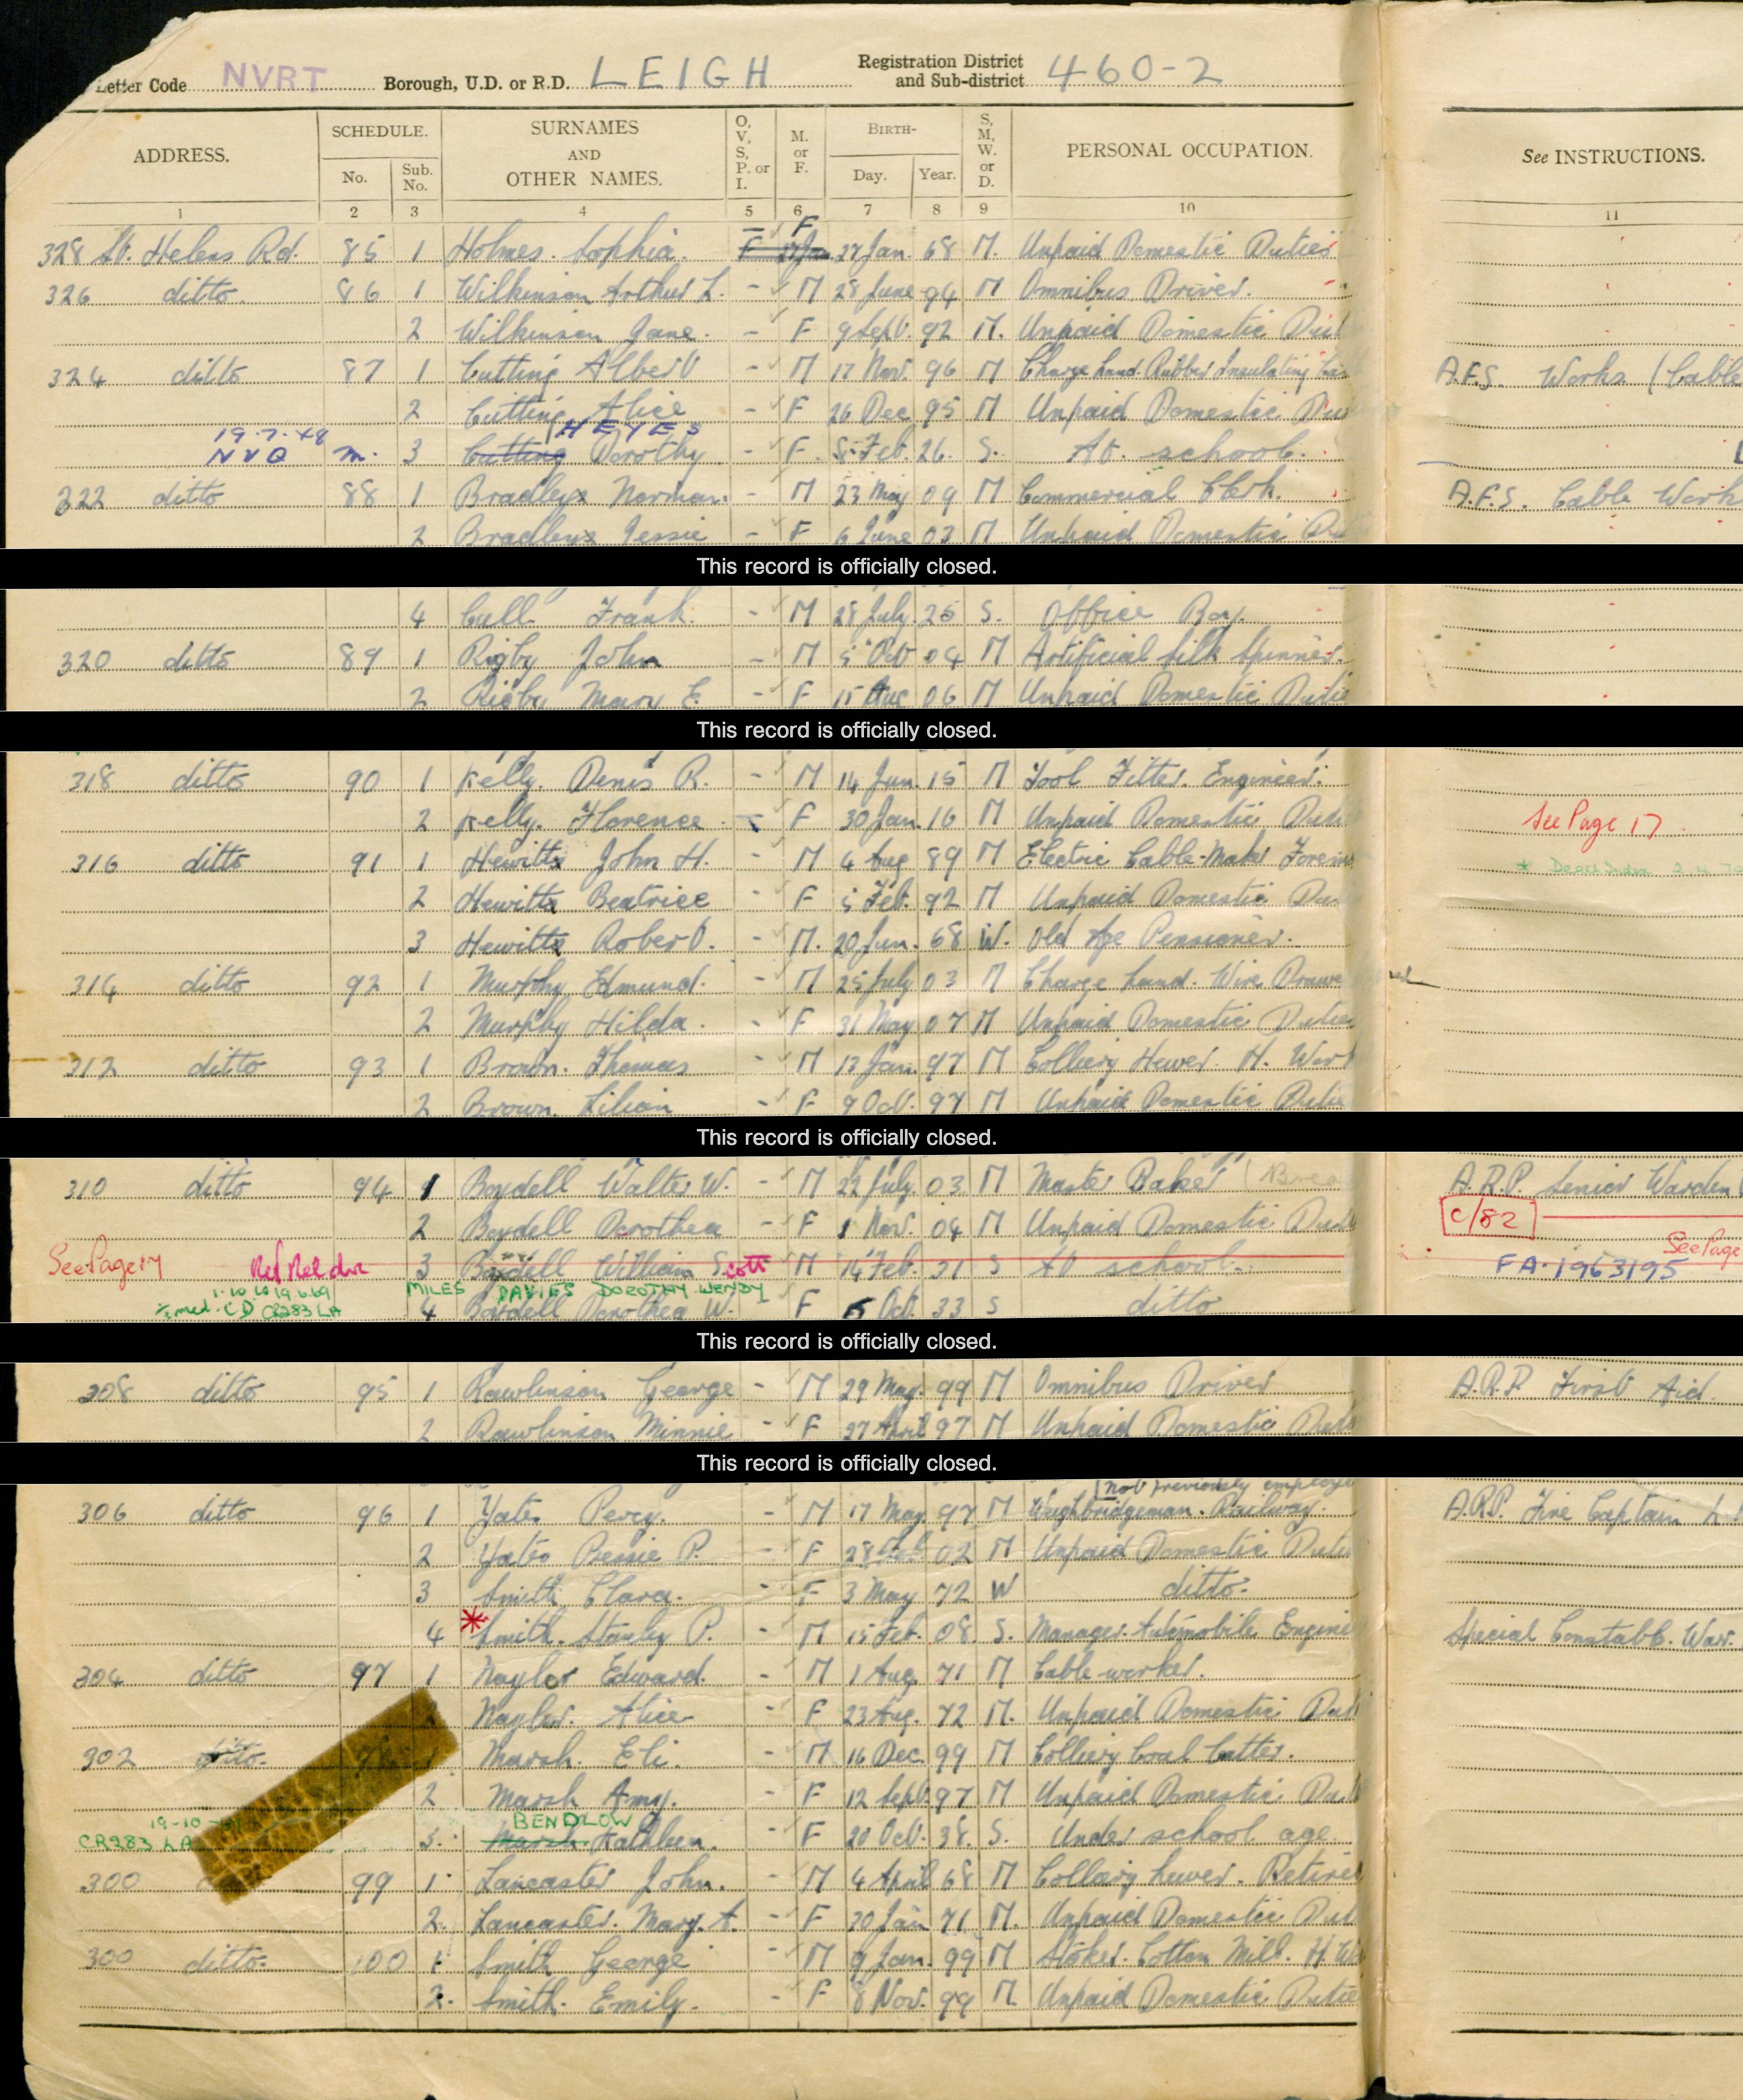 Letter Code NVRT Borough, U.D. or R.D. LEIGH Registration District and Sub-district 460-2
ADDRESS. SCHEDULE. No. Sub. No. SURNAMES AND OTHER NAMES. O, V, S, P. or I. M. or F. BIRTH- Day. Year. S, M, W. or D. PERSONAL OCCUPATION. See INSTRUCTIONS.
1 2 3 4 5 6 7 8 9 10 11
F
328 St. Helens Rd. 85 1 Holmes. Sophia. F 27 Jan. 68 M. Unpaid Domestic Duties
326 ditto. 86 1 Wilkinson Arthur L. - M 28 June 94 M Omnibus Driver.
2 Wilkinson Jane. - F 9 Sept. 92 M. Unpaid Domestic Dut
324 ditto 87 1 Cutting Albert - M 17 Nov. 96 M Charge hand. Rubber Insulating A.F.S. Works (Cable
2 Cutting Alice - F 26 Dec 95 M Unpaid Domestic Du
19.7.48 HEYES
NVQ m. 3 Cutting Dorothy - F. 8 Feb. 26. S. At school.
322 ditto 88 1 Bradley Norman. - M 23 May 09 M Commercial Clerk. A.F.S. Cable Work
2 Bradley Jessie - F 6 June 03 M Unpaid Domestic Du
This record is officially closed.
4 Cull Frank. - M 28 July. 25 S. Office Boy.
320 ditto 89 1 Rigby John - M 5 Oct 04 M Artificial Silk Spinner.
2 Rigby Mary E. - F 15 Aug 06 M Unpaid Domestic Dutie
This record is officially closed.
318 ditto 90 1 Kelly. Denis R. - M 14 Jun. 15 M Tool Fitter. Engineer.
2 Kelly. Florence - F 30 Jan. 16 M Unpaid Domestic Duti See Page 17
316 ditto 91 1 Hewitt John H. - M 4 Aug 89 M Electric Cable-Maker Forem
2 Hewitt Beatrice - F 5 Feb. 92 M Unpaid Domestic Du
3 Hewitt Robert. - M. 20 Jun. 68 W. Old Age Pensioner.
314 ditto 92 1 Murphy Edmund. - M 25 July 03 M Charge hand. Wire Drawe
2 Murphy Hilda. - F 31 May 07 M Unpaid Domestic Duties
312 ditto 93 1 Brown. Thomas - M 13 Jan. 97 M Colliery Hewer. H. Work
2 Brown. Lilian - F 9 Oct. 97 M Unpaid Domestic Dutie
This record is officially closed.
310 ditto 94 1 Boydell Walter W. - M 22 July. 03. M Master Baker (Brea A.R.P. Senior Warden
2 Boydell Dorothea - F 1 Nov. 04 M Unpaid Domestic Duti C/82
See Page 17 3 Boydell William Scott M 14 Feb. 31 S At school. See Page
FA.1963195
MILES DAVIES DOROTHY WENDY
CD CR283 LA 4 Boydell Dorothea W. - F 5 Oct. 33 S ditto
This record is officially closed.
308 ditto 95 1 Rawlinson George - M 29 May. 99 M Omnibus Driver A.R.P. First Aid.
2 Rawlinson Minnie - F 27 April 97 M Unpaid Domestic Duti
This record is officially closed.
(not previously employe
306 ditto 96 1 Yates Percy. - M 17 May 97 M Weighbridgeman. Railway. A.R.P. Fire Captain
2 Yates Bessie P. - F 28 02 M Unpaid Domestic Dutie
3 Smith Clara. - F 3 May 72 W ditto.
4 Smith. Stanley P. - M 15 Feb. 08. S. Manager. Automobile Engine Special Constabl. War.
304 ditto 97 1 Naylor Edward. - M 1 Aug. 71 M Cable-worker.
Naylor. Alice - F 23 Aug. 72 M. Unpaid Domestic Dut
302 ditto. 1 Marsh. Eli. - M 16 Dec. 99 M Colliery Coal Cutter.
2 Marsh Amy. - F 12 Sept. 97 M Unpaid Domestic Dut
19-10- BENDLOW
CR283 LA 3. Marsh. Kathleen. - F 20 Oct. 38. S. Under school age.
300 99 1 Lancaster John. - M 4 April 68 M Colliery hewer. Retired
2. Lancaster. Mary. A. - F 20 Jan 71 M. Unpaid Domestic Dut
300 ditto. 100 1 Smith George - M 9 Jan. 99 M Stoker. Cotton Mill.
2. Smith. Emily. - F 8 Nov. 99 M Unpaid Domestic Dutie